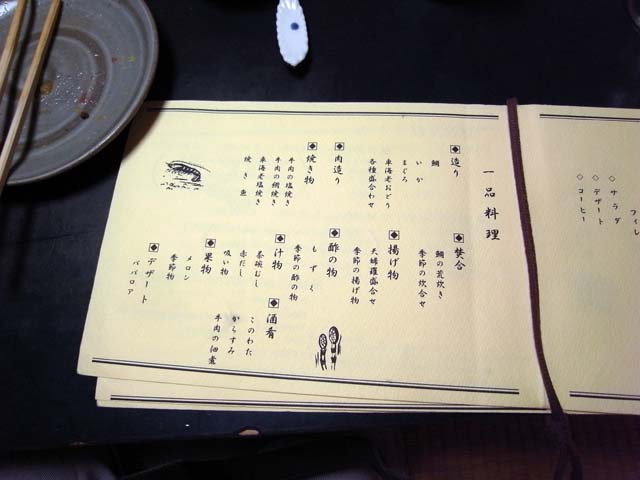 フィレ
◇サラダ
◇デザート
◇コーヒー
一品料理
造り
鯛
いか
まぐろ
車海老おどり
各種盛合わせ
肉造り
焼き物
牛肉の塩焼き
牛肉の網焼き
車海老塩焼き
焼き魚
焚合
鯛の荒炊き
季節の炊合せ
揚げ物
天婦羅盛合せ
季節の揚げ物
酢の物
もずく
季節の酢の物
汁物
茶碗むし
赤だし
吸い物
果物
メロン
季節物
デザート
ババロア
酒肴
このわた
からすみ
牛肉の佃煮